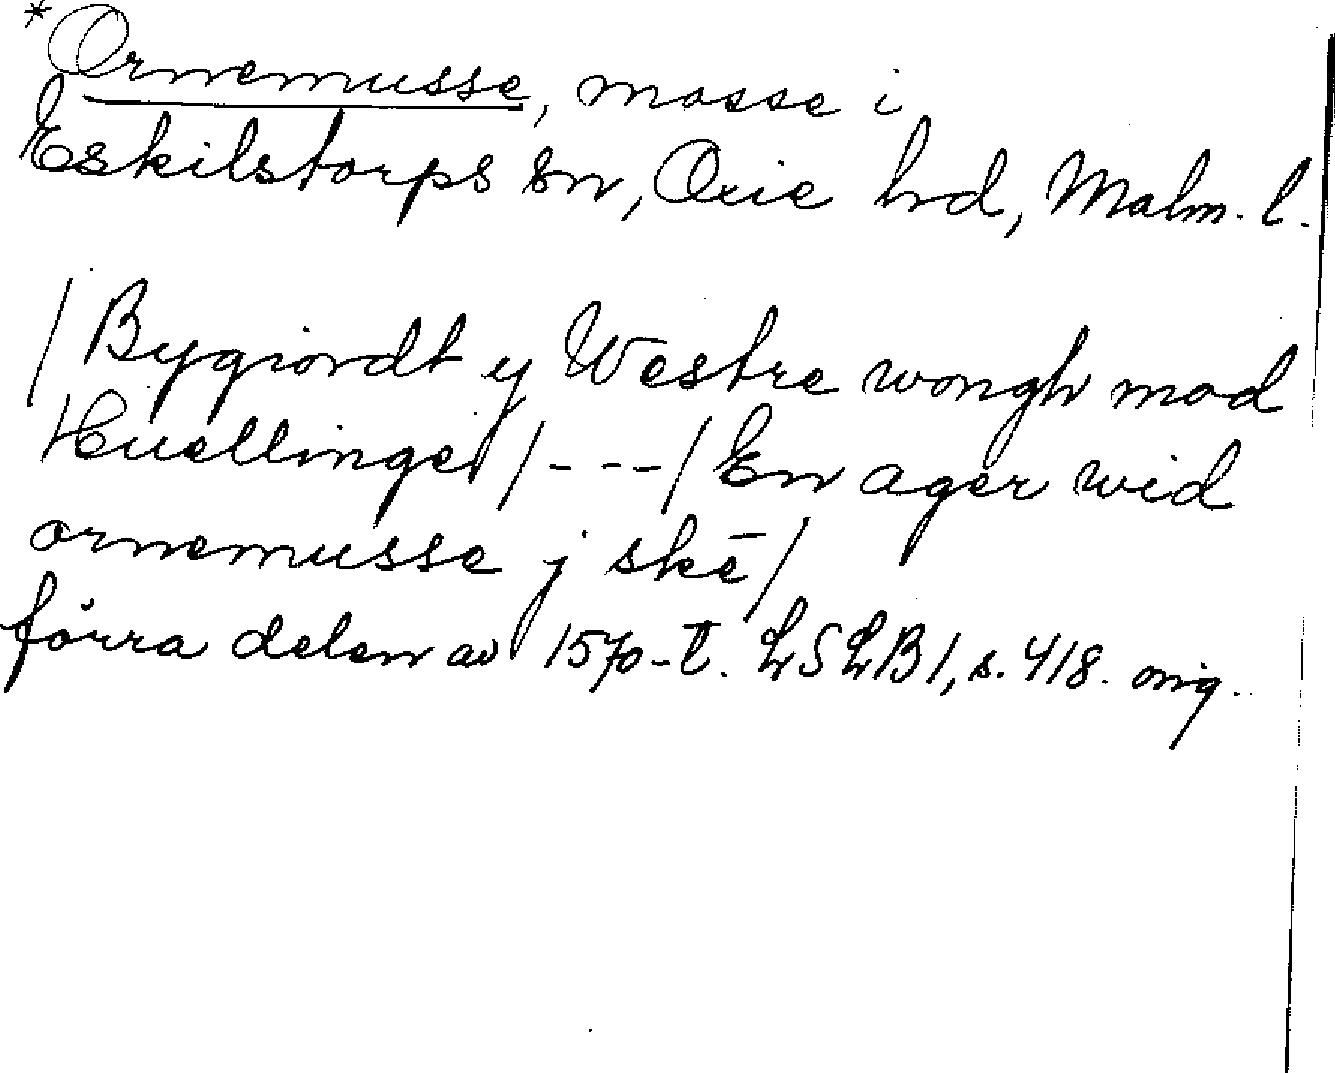 *Ornemusse, mosse i
Eskilstorps sn, Oxie hd, Malm. l.
/Bygiordt y Westre wongh mod
Huellinge/---/En ager wid
ornemusse j skē/
förra delen av 1570-t. LSLB1, s. 418. orig.